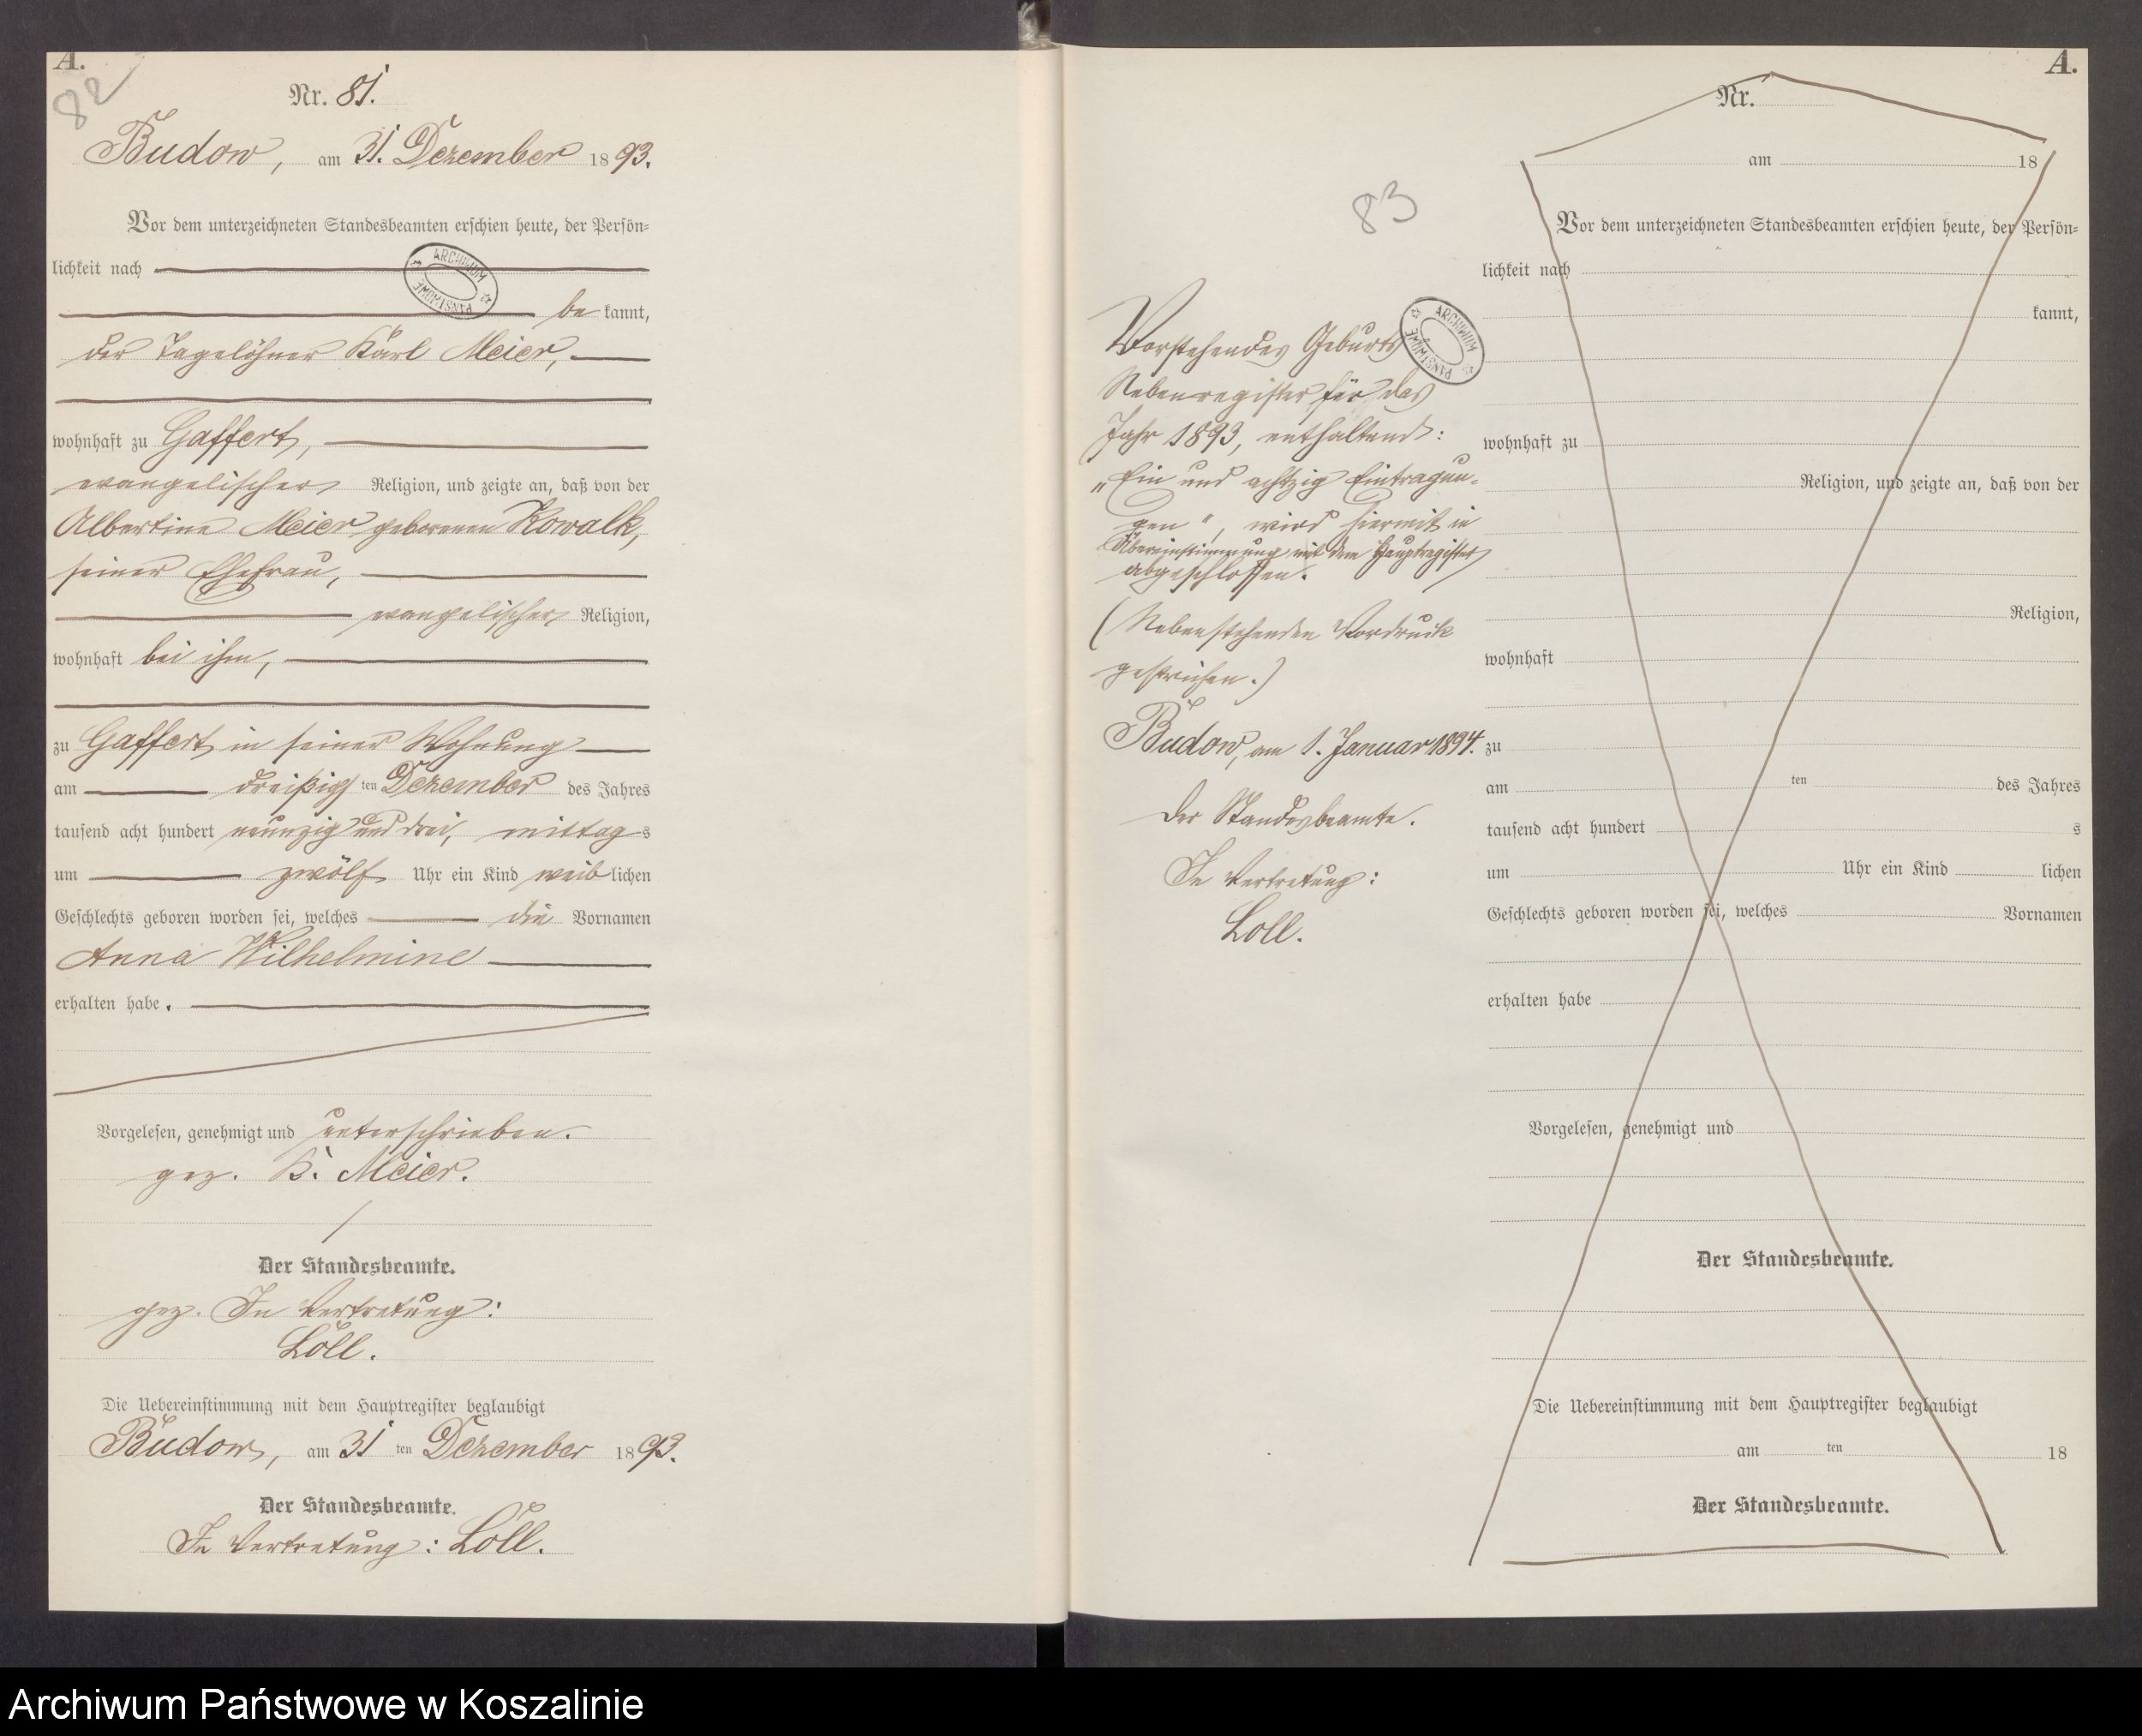 A.
82
Nr. 81.
Budow, am 31. Dezember 1893.
Vor dem unterzeichneten Standesbeamten erschien heute, der Persön-
lichkeit nach
be kannt,
der Tagelöhner Karl Meier,
wohnhaft zu Gaffert,
evangelischer Religion, und zeigte an, daß von der
Albertine Meier geborenen Kowalk,
seiner Ehefrau,
evangelischer Religion,
wohnhaft bei ihm,
zu Gaffert in seiner Wohnung
am dreißig ten Dezember des Jahres
tausend acht hundert neunzig und drei, mittag s
um zwölf Uhr ein Kind weib lichen
Geschlechts geboren worden sei, welches die Vornamen
Anna Wilhelmine
erhalten habe.
Vorgelesen, genehmigt und unterschrieben.
gez. K. Meier.
Der Standesbeamte.
gez. In Vertretung:
Löll.
Die Uebereinstimmung mit dem Hauptregister beglaubigt
Budow, am 31 ten Dezember 1893.
Der Standesbeamte.
In Vertretung: Löll.
ARCHIWUM PAŃSTWOWE
83
Vorstehendes Geburts
Nebenregister für das
Jahr 1893, enthaltend:
„Ein und achtzig Eintragun-
gen", wird hiermit in
Übereinstimmung mit dem Hauptregister
abgeschlossen.
(Nebenstehenden Vordruck
gestrichen.)
Budow, am 1. Januar 1894.
Der Standesbeamte.
In Vertretung:
Loll.
ARCHIWUM PAŃSTWOWE
A.
Nr.
am 18
Vor dem unterzeichneten Standesbeamten erschien heute, der Persön-
lichkeit nach
kannt,
wohnhaft zu
Religion, und zeigte an, daß von der
Religion,
wohnhaft
zu
am ten des Jahres
tausend acht hundert s
um Uhr ein Kind lichen
Geschlechts geboren worden sei, welches Vornamen
erhalten habe
Vorgelesen, genehmigt und
Der Standesbeamte.
Die Uebereinstimmung mit dem Hauptregister beglaubigt
am ten 18
Der Standesbeamte.
Archiwum Państwowe w Koszalinie